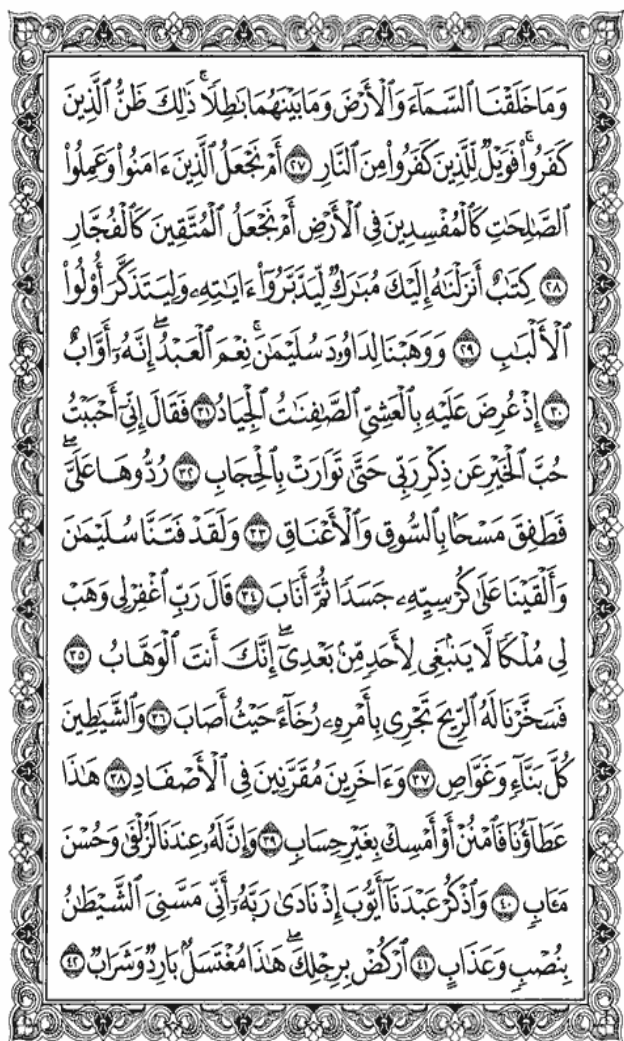 وَمَا خَلَقْنَا ٱلسَّمَآءَ وَٱلْأَرْضَ وَمَا بَيْنَهُمَا بَـٰطِلًا ۚ ذَٰلِكَ ظَنُّ ٱلَّذِينَ
كَفَرُوا۟ ۚ فَوَيْلٌ لِّلَّذِينَ كَفَرُوا۟ مِنَ ٱلنَّارِ ٢٧ أَمْ نَجْعَلُ ٱلَّذِينَ ءَامَنُوا۟ وَعَمِلُوا۟
ٱلصَّـٰلِحَـٰتِ كَٱلْمُفْسِدِينَ فِى ٱلْأَرْضِ أَمْ نَجْعَلُ ٱلْمُتَّقِينَ كَٱلْفُجَّارِ
٢٨ كِتَـٰبٌ أَنزَلْنَـٰهُ إِلَيْكَ مُبَـٰرَكٌ لِّيَدَّبَّرُوٓا۟ ءَايَـٰتِهِۦ وَلِيَتَذَكَّرَ أُو۟لُوا۟
ٱلْأَلْبَـٰبِ ٢٩ وَوَهَبْنَا لِدَاوُۥدَ سُلَيْمَـٰنَ ۚ نِعْمَ ٱلْعَبْدُ ۖ إِنَّهُۥٓ أَوَّابٌ
٣٠ إِذْ عُرِضَ عَلَيْهِ بِٱلْعَشِىِّ ٱلصَّـٰفِنَـٰتُ ٱلْجِيَادُ ٣١ فَقَالَ إِنِّىٓ أَحْبَبْتُ
حُبَّ ٱلْخَيْرِ عَن ذِكْرِ رَبِّى حَتَّىٰ تَوَارَتْ بِٱلْحِجَابِ ٣٢ رُدُّوهَا عَلَىَّ ۖ
فَطَفِقَ مَسْحًۢا بِٱلسُّوقِ وَٱلْأَعْنَاقِ ٣٣ وَلَقَدْ فَتَنَّا سُلَيْمَـٰنَ
وَأَلْقَيْنَا عَلَىٰ كُرْسِيِّهِۦ جَسَدًا ثُمَّ أَنَابَ ٣٤ قَالَ رَبِّ ٱغْفِرْ لِى وَهَبْ
لِى مُلْكًا لَّا يَنۢبَغِى لِأَحَدٍ مِّنۢ بَعْدِىٓ ۖ إِنَّكَ أَنتَ ٱلْوَهَّابُ ٣٥
فَسَخَّرْنَا لَهُ ٱلرِّيحَ تَجْرِى بِأَمْرِهِۦ رُخَآءً حَيْثُ أَصَابَ ٣٦ وَٱلشَّيَـٰطِينَ
كُلَّ بَنَّآءٍ وَغَوَّاصٍ ٣٧ وَءَاخَرِينَ مُقَرَّنِينَ فِى ٱلْأَصْفَادِ ٣٨ هَـٰذَا
عَطَآؤُنَا فَٱمْنُنْ أَوْ أَمْسِكْ بِغَيْرِ حِسَابٍ ٣٩ وَإِنَّ لَهُۥ عِندَنَا لَزُلْفَىٰ وَحُسْنَ
مَـَٔابٍ ٤٠ وَٱذْكُرْ عَبْدَنَآ أَيُّوبَ إِذْ نَادَىٰ رَبَّهُۥٓ أَنِّى مَسَّنِىَ ٱلشَّيْطَـٰنُ
بِنُصْبٍ وَعَذَابٍ ٤١ ٱرْكُضْ بِرِجْلِكَ ۖ هَـٰذَا مُغْتَسَلٌۢ بَارِدٌ وَشَرَابٌ ٤٢